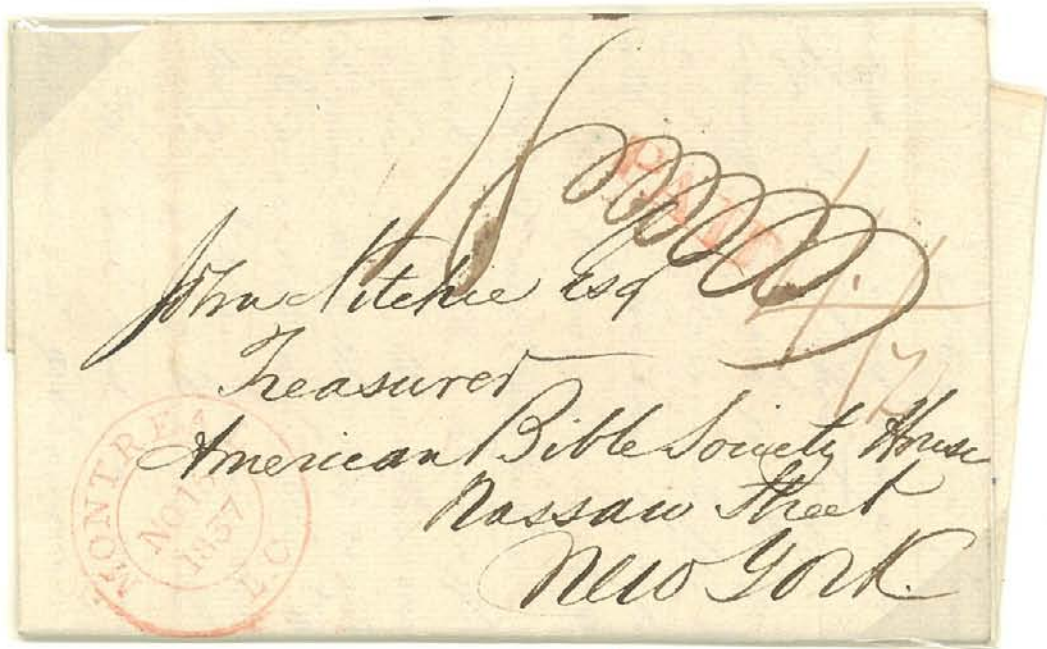 18
PAID
John Ritchie Esq
Treasurer
American Bible Society House
Nassaw Street
New York.
MONTREAL
NO
1837
L.C